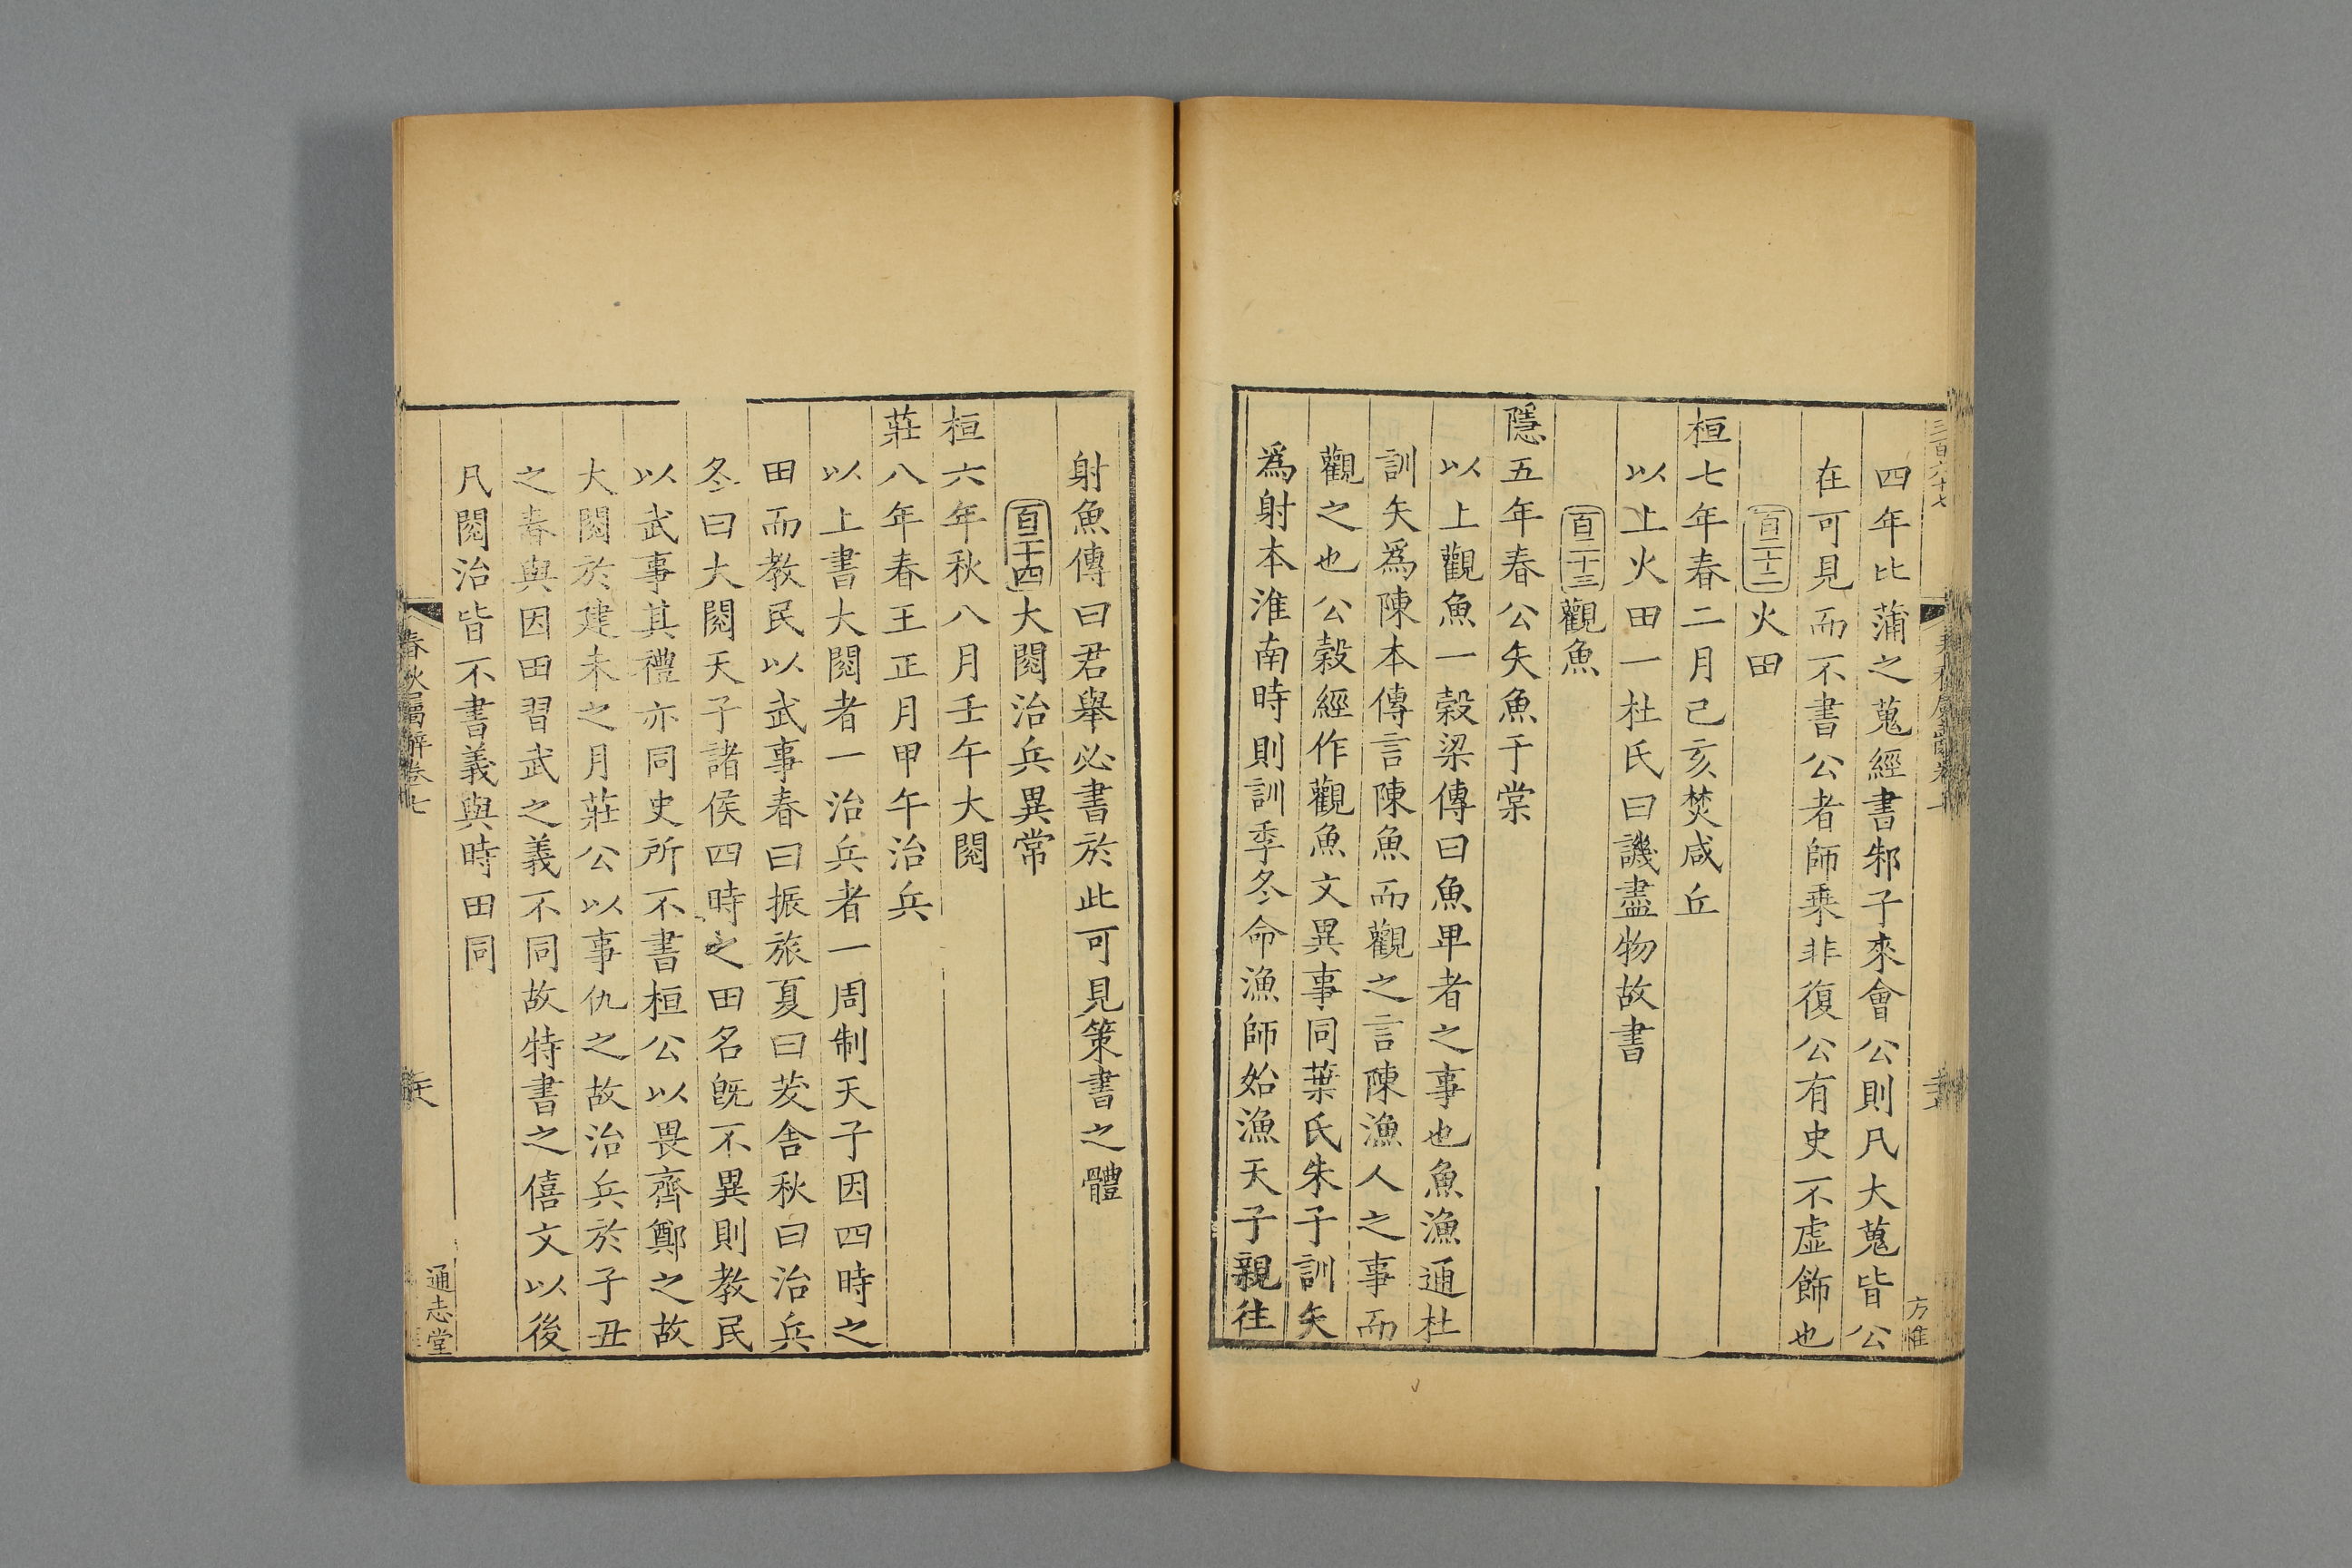 三百六十七
方惟
四年比蒲之蒐經書邾子來會公則凡大蒐皆公
在可見而不書公者師乘非復公有史不虛飾也
百二十二火田
桓七年春二月己亥焚咸丘
以上火田一杜氏曰譏盡物故書
百二十三觀魚
隱五年春公矢魚于棠
以上觀魚一榖梁傳曰魚卑者之事也魚漁通杜
訓矢爲陳本傳言陳魚而觀之言陳漁人之事而
觀之也公榖經作觀魚文異事同葉氏朱子訓矢
爲射本淮南時則訓季冬命漁師始漁天子親往
射魚傳曰君舉必書於此可見策書之體
百二十四大閱治兵異常
桓六年秋八月壬午大閱
莊八年春王正月甲午治兵
以上書大閱者一治兵者一周制天子因四時之
田而教民以武事春曰振旅夏曰茇舍秋曰治兵
冬曰大閱天子諸侯四時之田名旣不異則教民
以武事其禮亦同史所不書桓公以畏齊鄭之故
大閱於建未之月莊公以事仇之故治兵於子丑
之春與因田習武之義不同故特書之僖文以後
凡閱治皆不書義與時田同
春秋屬辭卷七
通志堂